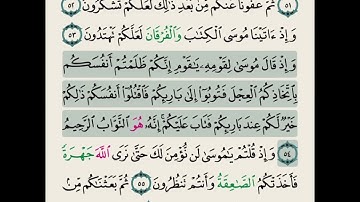 ٥١ ثُمَّ عَفَوْنَا عَنكُم مِّنۢ بَعْدِ ذَٰلِكَ لَعَلَّكُمْ تَشْكُرُونَ ٥٢
وَإِذْ ءَاتَيْنَا مُوسَى ٱلْكِتَٰبَ وَٱلْفُرْقَانَ لَعَلَّكُمْ تَهْتَدُونَ ٥٣
وَإِذْ قَالَ مُوسَىٰ لِقَوْمِهِۦ يَٰقَوْمِ إِنَّكُمْ ظَلَمْتُمْ أَنفُسَكُم
بِٱتِّخَاذِكُمُ ٱلْعِجْلَ فَتُوبُوٓا۟ إِلَىٰ بَارِئِكُمْ فَٱقْتُلُوٓا۟ أَنفُسَكُمْ ذَٰلِكُمْ
خَيْرٌ لَّكُمْ عِندَ بَارِئِكُمْ فَتَابَ عَلَيْكُمْ إِنَّهُۥ هُوَ ٱلتَّوَّابُ ٱلرَّحِيمُ
٥٤ وَإِذْ قُلْتُمْ يَٰمُوسَىٰ لَن نُّؤْمِنَ لَكَ حَتَّىٰ نَرَى ٱللَّهَ جَهْرَةً
فَأَخَذَتْكُمُ ٱلصَّٰعِقَةُ وَأَنتُمْ تَنظُرُونَ ٥٥ ثُمَّ بَعَثْنَٰكُم مِّنۢ